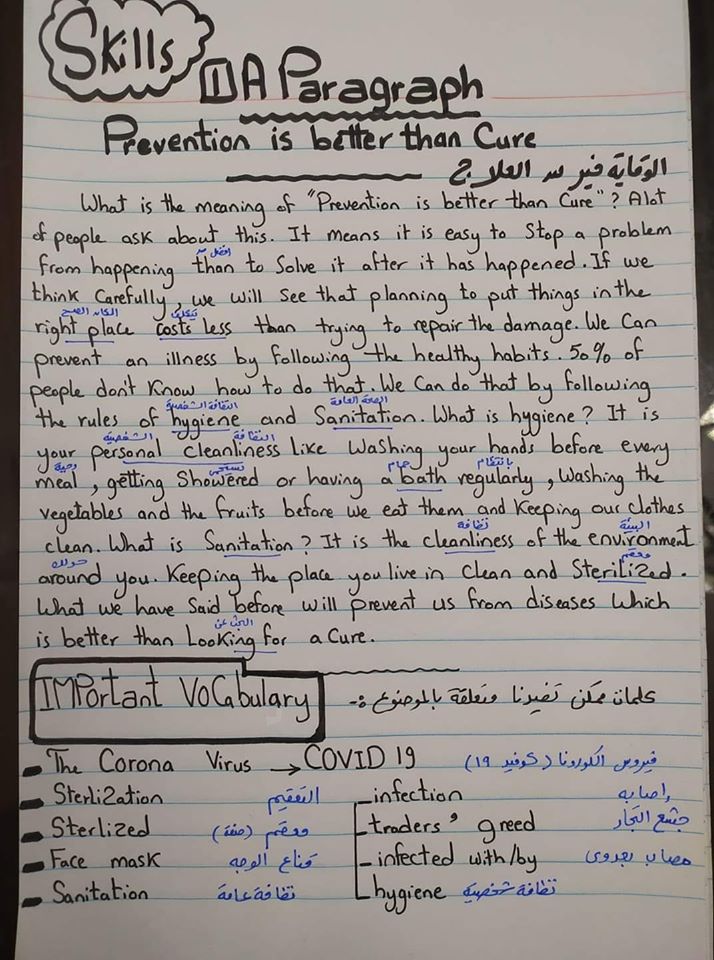 Skills
① A Paragraph
Prevention is better than Cure
الوقاية خير من العلاج
What is the meaning of "Prevention is better than Cure"? Alot
of people ask about this. It means it is easy to Stop a problem
افضل من
from happening than to Solve it after it has happened. If we
think Carefully, we will see that planning to put things in the
المكان الصحيح تكلف
right place costs less than trying to repair the damage. We Can
prevent an illness by following the healthy habits. 50% of
people don't Know how to do that. We Can do that by following
النظافة الشخصية الصحة العامة
the rules of hygiene and Sanitation. What is hygiene? It is
الشخصية النظافة
your personal cleanliness Like Washing your hands before every
وجبة تستحمى حمام بانتظام
meal, getting Showered or having a bath regularly, Washing the
vegetables and the fruits before we eat them and Keeping our clothes
نظافة البيئة
clean. What is Sanitation? It is the cleanliness of the environment
حولك معقم
around you. Keeping the place you live in Clean and SteriliZed.
What we have Said before will prevent us from diseases Which
البحث عن
is better than LooKing for a Cure.
IMPortant VoCabulary
كلمات ممكن تفيدنا متعلقة بالموضوع :-
The Corona Virus → COVID 19 فيروس الكورونا (كوفيد ١٩)
SterliZation التعقيم
infection إصابه
Sterlized معقم (صفة)
traders' greed جشع التجار
Face mask قناع الوجه
infected with/by مصاب بعدوى
Sanitation نظافة عامة
hygiene نظافة شخصية